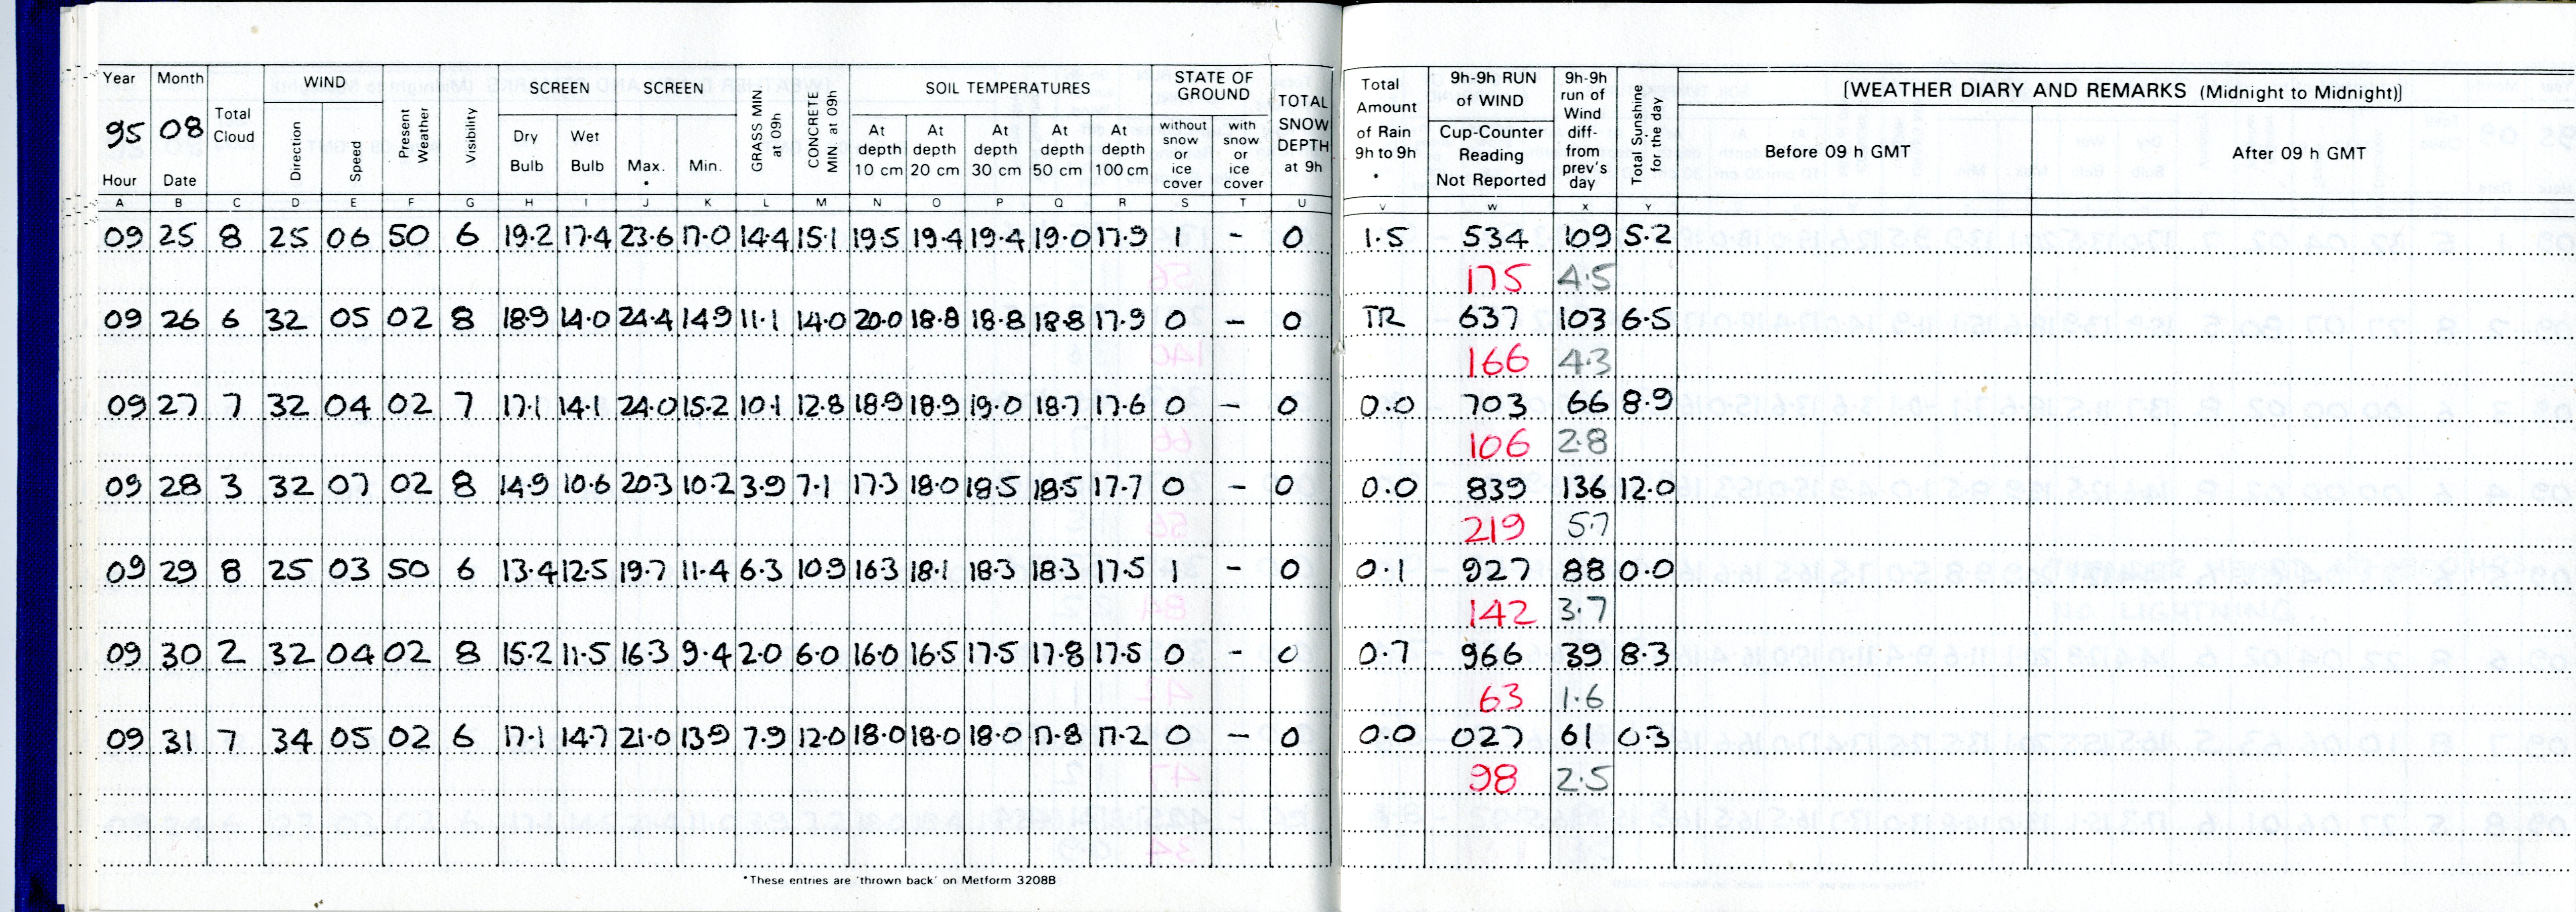 Year Month WIND SCREEN SCREEN SOIL TEMPERATURES STATE OF GROUND Total Amount of Rain 9h to 9h * 9h-9h RUN of WIND 9h-9h run of Wind diff- from prev's day Total Sunshine for the day [WEATHER DIARY AND REMARKS (Midnight to Midnight)]
95 08 Total Cloud Direction Speed Present Weather Visibility Dry Bulb Wet Bulb Max. * Min. GRASS MIN at 09h CONCRETE MIN at 09h At depth 10 cm At depth 20 cm At depth 30 cm At depth 50 cm At depth 100 cm without snow or ice cover with snow or ice cover TOTAL SNOW DEPTH at 9h Cup-Counter Reading Not Reported Before 09 h GMT After 09 h GMT
Hour Date
A B C D E F G H I J K L M N O P Q R S T U V W X Y
09 25 8 25 06 50 6 19.2 17.4 23.6 17.0 14.4 15.1 19.5 19.4 19.4 19.0 17.9 1 - 0 1.5 534 109 5.2
175 4.5
09 26 6 32 05 02 8 18.9 14.0 24.4 14.9 11.1 14.0 20.0 18.8 18.8 18.8 17.9 0 - 0 TR 637 103 6.5
166 4.3
09 27 7 32 04 02 7 17.1 14.1 24.0 15.2 10.1 12.8 18.9 18.9 19.0 18.7 17.6 0 - 0 0.0 703 66 8.9
106 2.8
09 28 3 32 07 02 8 14.9 10.6 20.3 10.2 3.9 7.1 17.3 18.0 18.5 18.5 17.7 0 - 0 0.0 839 136 12.0
219 5.7
09 29 8 25 03 50 6 13.4 12.5 19.7 11.4 6.3 10.9 16.3 18.1 18.3 18.3 17.5 1 - 0 0.1 927 88 0.0
142 3.7
09 30 2 32 04 02 8 15.2 11.5 16.3 9.4 2.0 6.0 16.0 16.5 17.5 17.8 17.5 0 - 0 0.7 966 39 8.3
63 1.6
09 31 7 34 05 02 6 17.1 14.7 21.0 13.9 7.9 12.0 18.0 18.0 18.0 17.8 17.2 0 - 0 0.0 027 61 0.3
98 2.5
*These entries are 'thrown back' on Metform 3208B